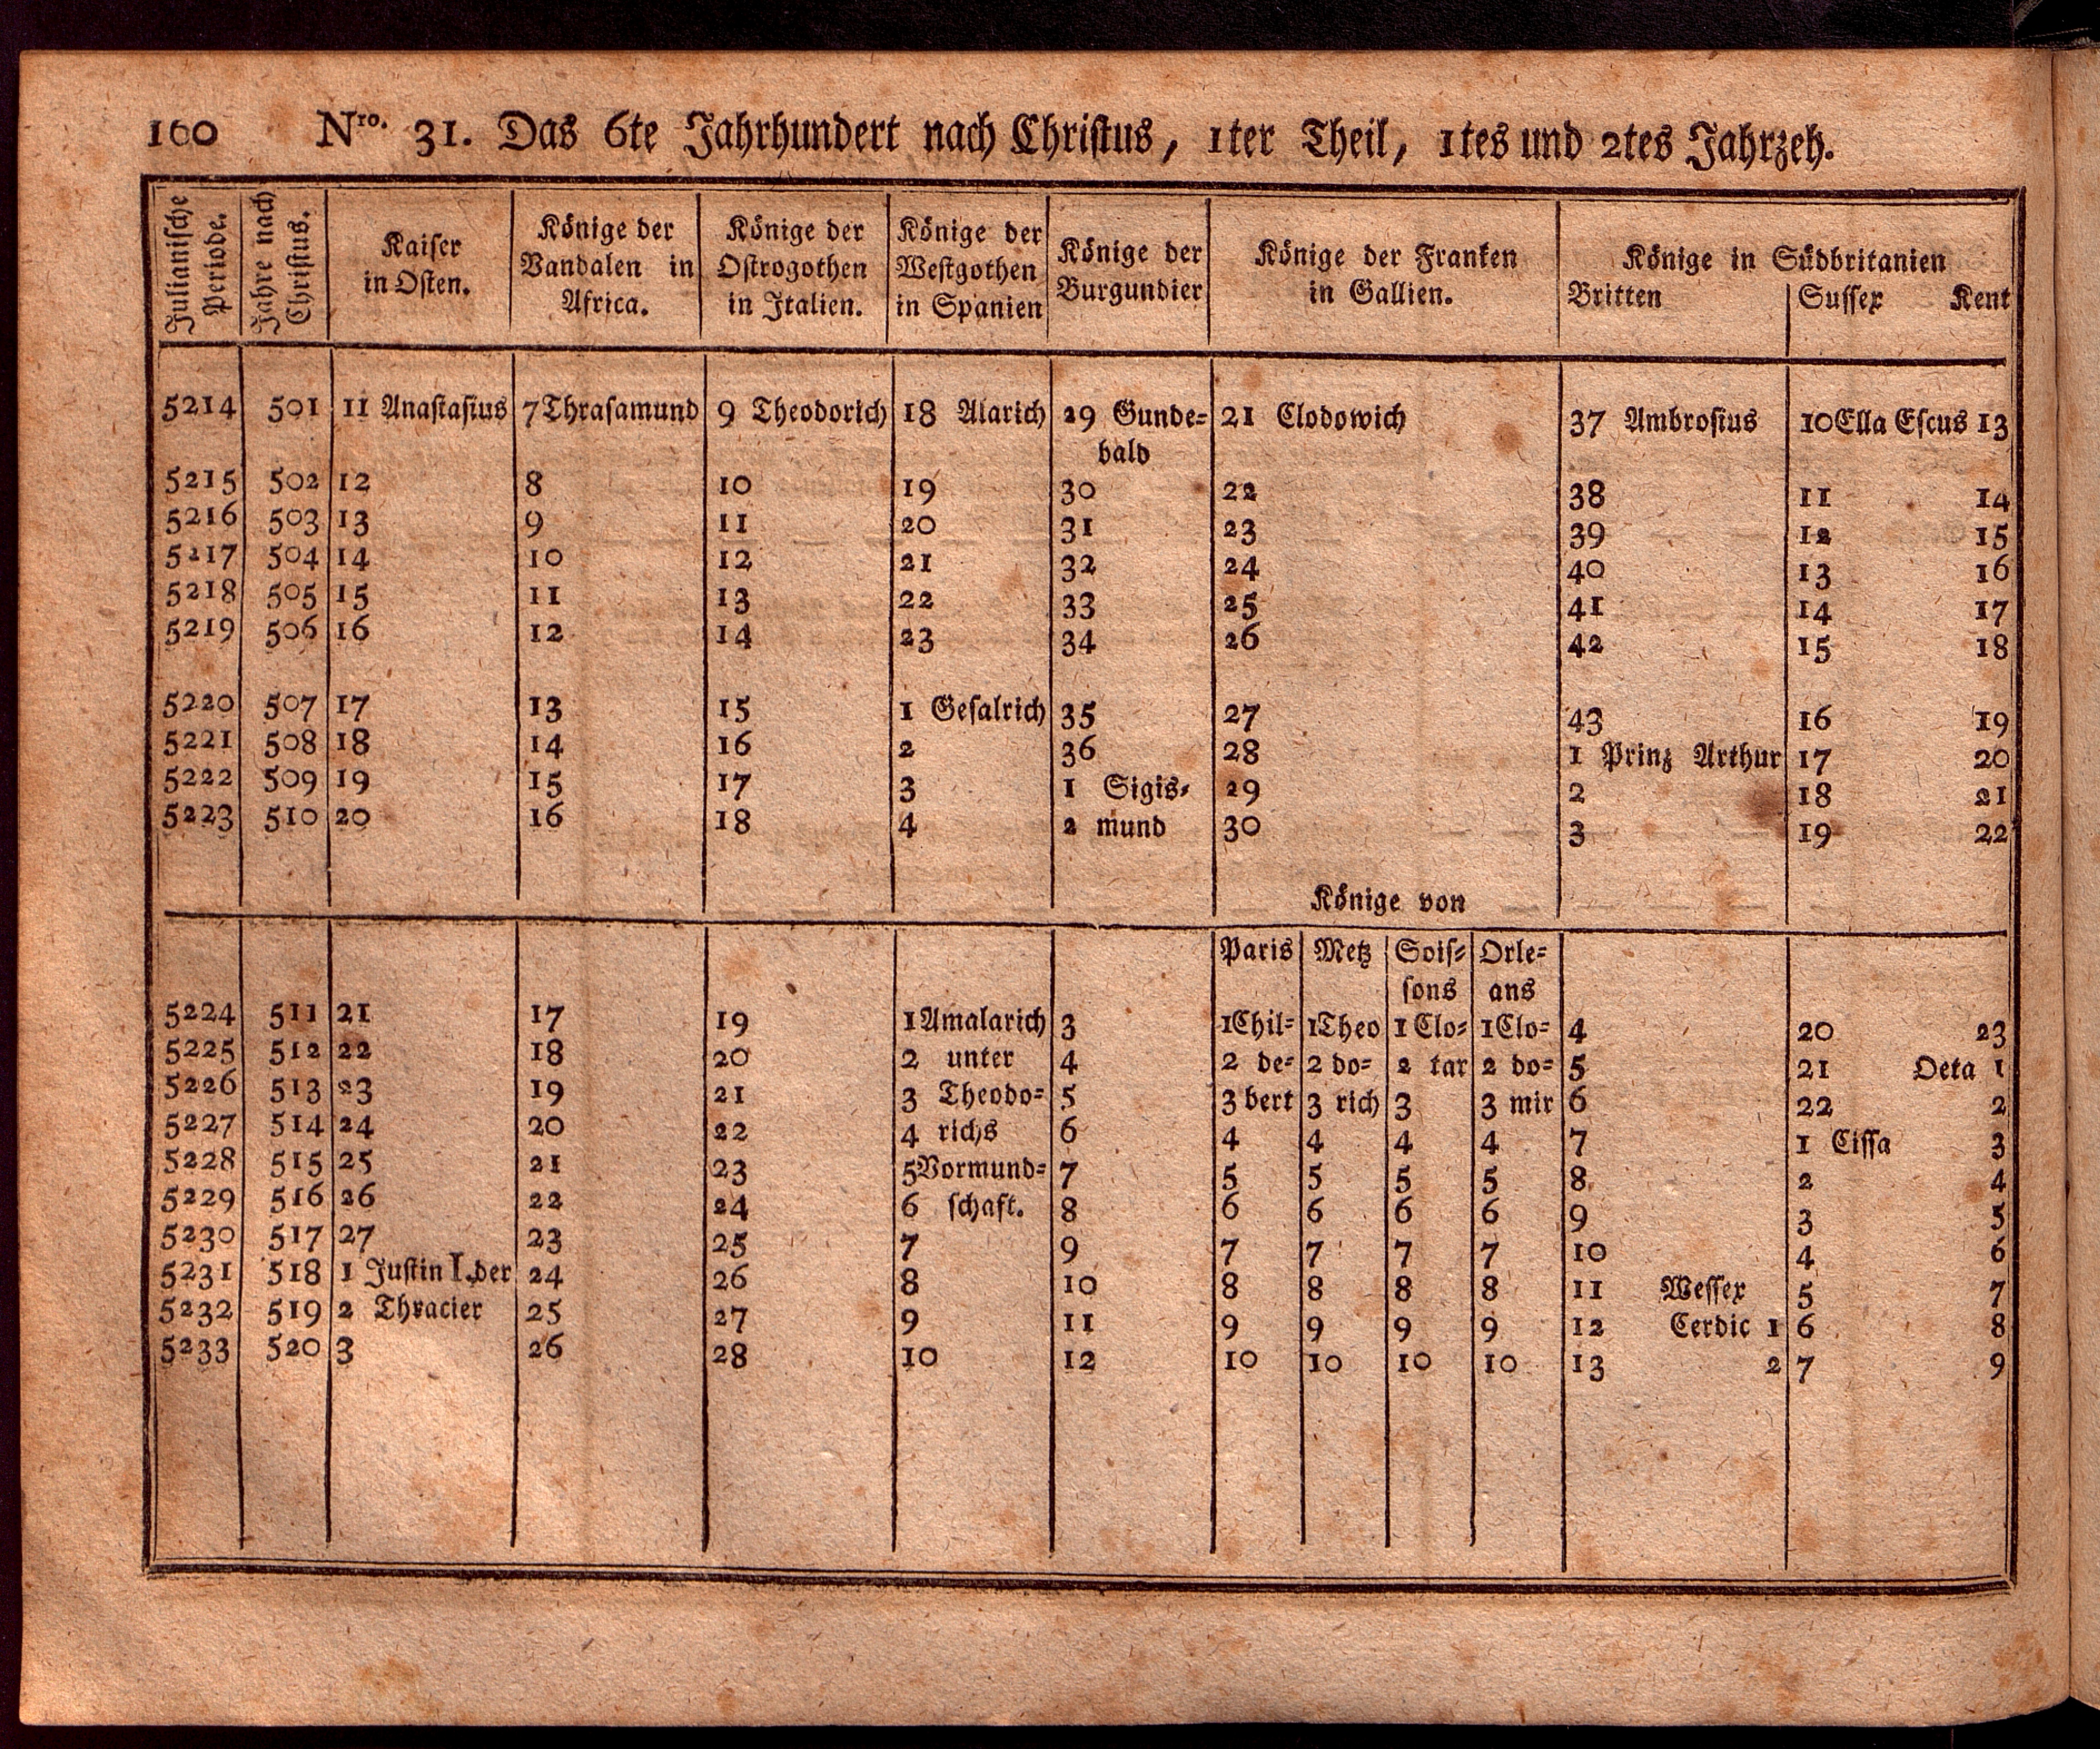 160 Nro. 31. Das 6te Jahrhundert nach Christus, 1ter Theil, 1tes und 2tes Jahrzeh.
Julianische Periode. Jahre nach Christus. Kaiser in Osten. Könige der Vandalen in Africa. Könige der Ostrogothen in Italien. Könige der Westgothen in Spanien Könige der Burgundier Könige der Franken in Gallien. Könige in Südbritanien
Britten Sussex Kent
5214 501 11 Anastasius 7 Thrasamund 9 Theodorich 18 Alarich 29 Gunde= 21 Clodowich 37 Ambrosius 10 Ella Escus 13
bald
5215 502 12 8 10 19 30 22 38 11 14
5216 503 13 9 11 20 31 23 39 12 15
5217 504 14 10 12 21 32 24 40 13 16
5218 505 15 11 13 22 33 25 41 14 17
5219 506 16 12 14 23 34 26 42 15 18
5220 507 17 13 15 1 Gesalrich 35 27 43 16 19
5221 508 18 14 16 2 36 28 1 Prinz Arthur 17 20
5222 509 19 15 17 3 1 Sigis= 29 2 18 21
5223 510 20 16 18 4 2 mund 30 3 19 22
Könige von
Paris Metz Sois= Orle=
sons ans
5224 511 21 17 19 1 Amalarich 3 1 Chil= 1 Theo 1 Clo= 1 Clo= 4 20 23
5225 512 22 18 20 2 unter 4 2 de= 2 do= 2 tar 2 do= 5 21 Oeta 1
5226 513 23 19 21 3 Theodo= 5 3 bert 3 rich 3 3 mir 6 22 2
5227 514 24 20 22 4 richs 6 4 4 4 4 7 1 Cissa 3
5228 515 25 21 23 5 Vormund= 7 5 5 5 5 8 2 4
5229 516 26 22 24 6 schaft. 8 6 6 6 6 9 3 5
5230 517 27 23 25 7 9 7 7 7 7 10 4 6
5231 518 1 Justin I. der 24 26 8 10 8 8 8 8 11 Wessex 5 7
5232 519 2 Thracier 25 27 9 11 9 9 9 9 12 Cerdic 1 6 8
5233 520 3 26 28 10 12 10 10 10 10 13 2 7 9